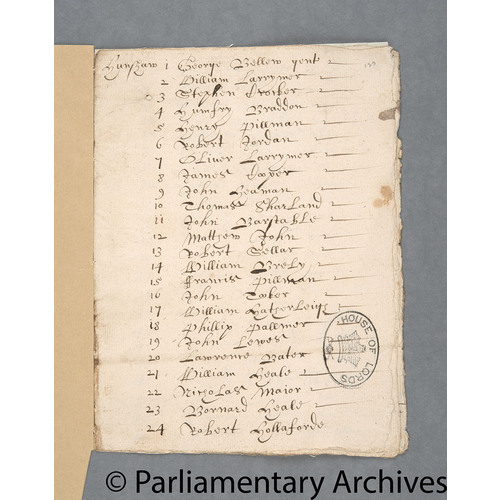 Hunshaw 1 George Bellew gent
2 William Larrymer
3 Stephen Crocker
4 Humfry Braddon
5 Henry Pillman
6 Robert Jordan
7 Oliver Larrymer
8 James Cooper
9 John Beaman
10 Thomas Sharland
11 John Barstable
12 Matthew John
13 Robert Sellar
14 William Brely
15 Francis Pillman
16 John Tooker
17 William Hatherleigh
18 Phillip Pallmer
19 John Lewes
20 Lawrence Bater
21 William Heale
22 Nicholas Maior
23 Bernard Heale
24 Robert Hollaforde
HOUSE OF LORDS
© Parliamentary Archives